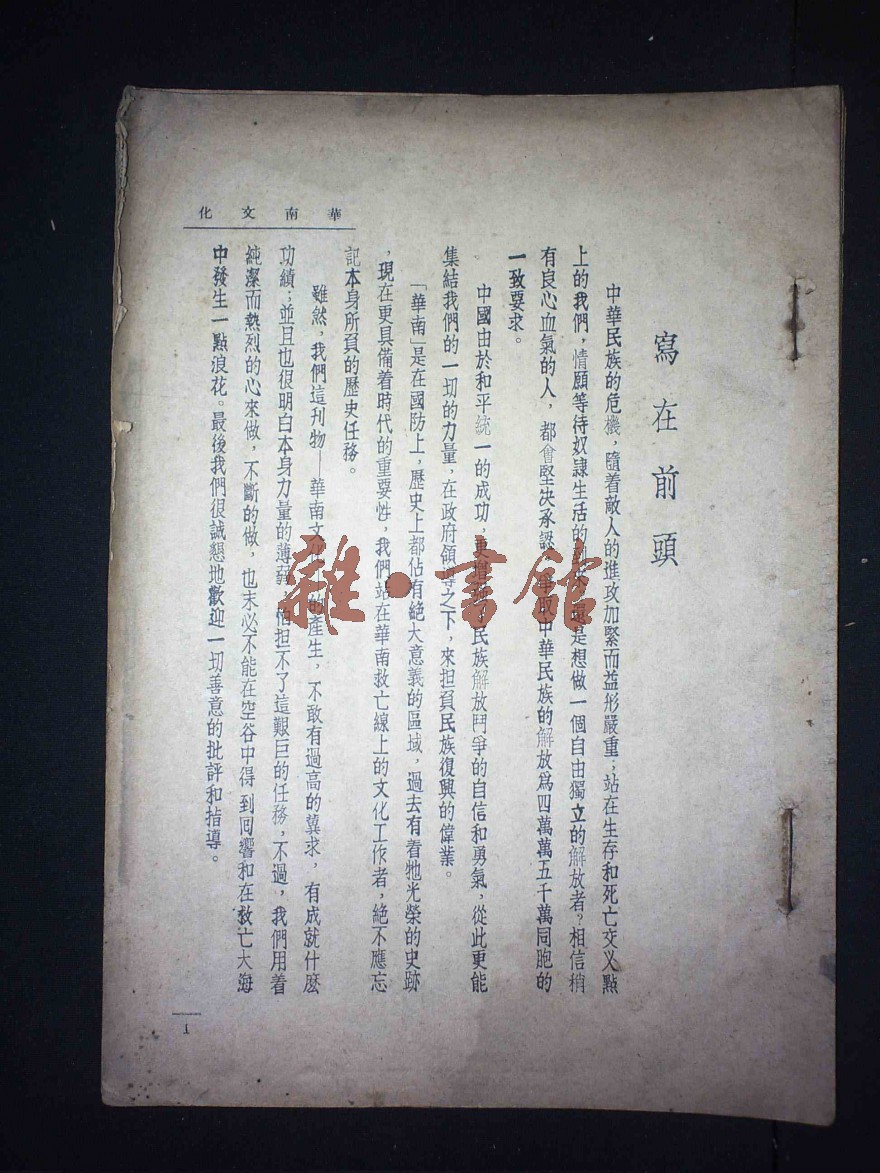 華南文化
寫在前頭
中華民族的危機，隨着敵人的進攻加緊而益形嚴重；站在生存和死亡交乂點
上的我們，情願等待奴隸生活的 還是想做一個自由獨立的解放者？相信稍
有良心血氣的人，都會堅决承認 爭取中華民族的解放爲四萬萬五千萬同胞的
一致要求。
中國由於和平統一的成功，更增 了民族解放鬥爭的自信和勇氣，從此更能
集結我們的一切的力量，在政府領導之下，來担負民族復興的偉業。
「華南」是在國防上，歷史上都佔有絕大意義的區域，過去有着牠光榮的史跡
，現在更具備着時代的重要性，我們站在華南救亡線上的文化工作者，絕不應忘
記本身所負的歷史任務。
雖然，我們這刊物—華南文化—的產生，不敢有過高的冀求，有成就什麽
功績；並且也很明白本身力量的薄弱，怕担不了這艱巨的任務，不過，我們用着
純潔而熱烈的心來做，不斷的做，也末必不能在空谷中得到囘響和在救亡大海
中發生一點浪花。最後我們很誠懇地歡迎一切善意的批評和指導。
1
雜·書館